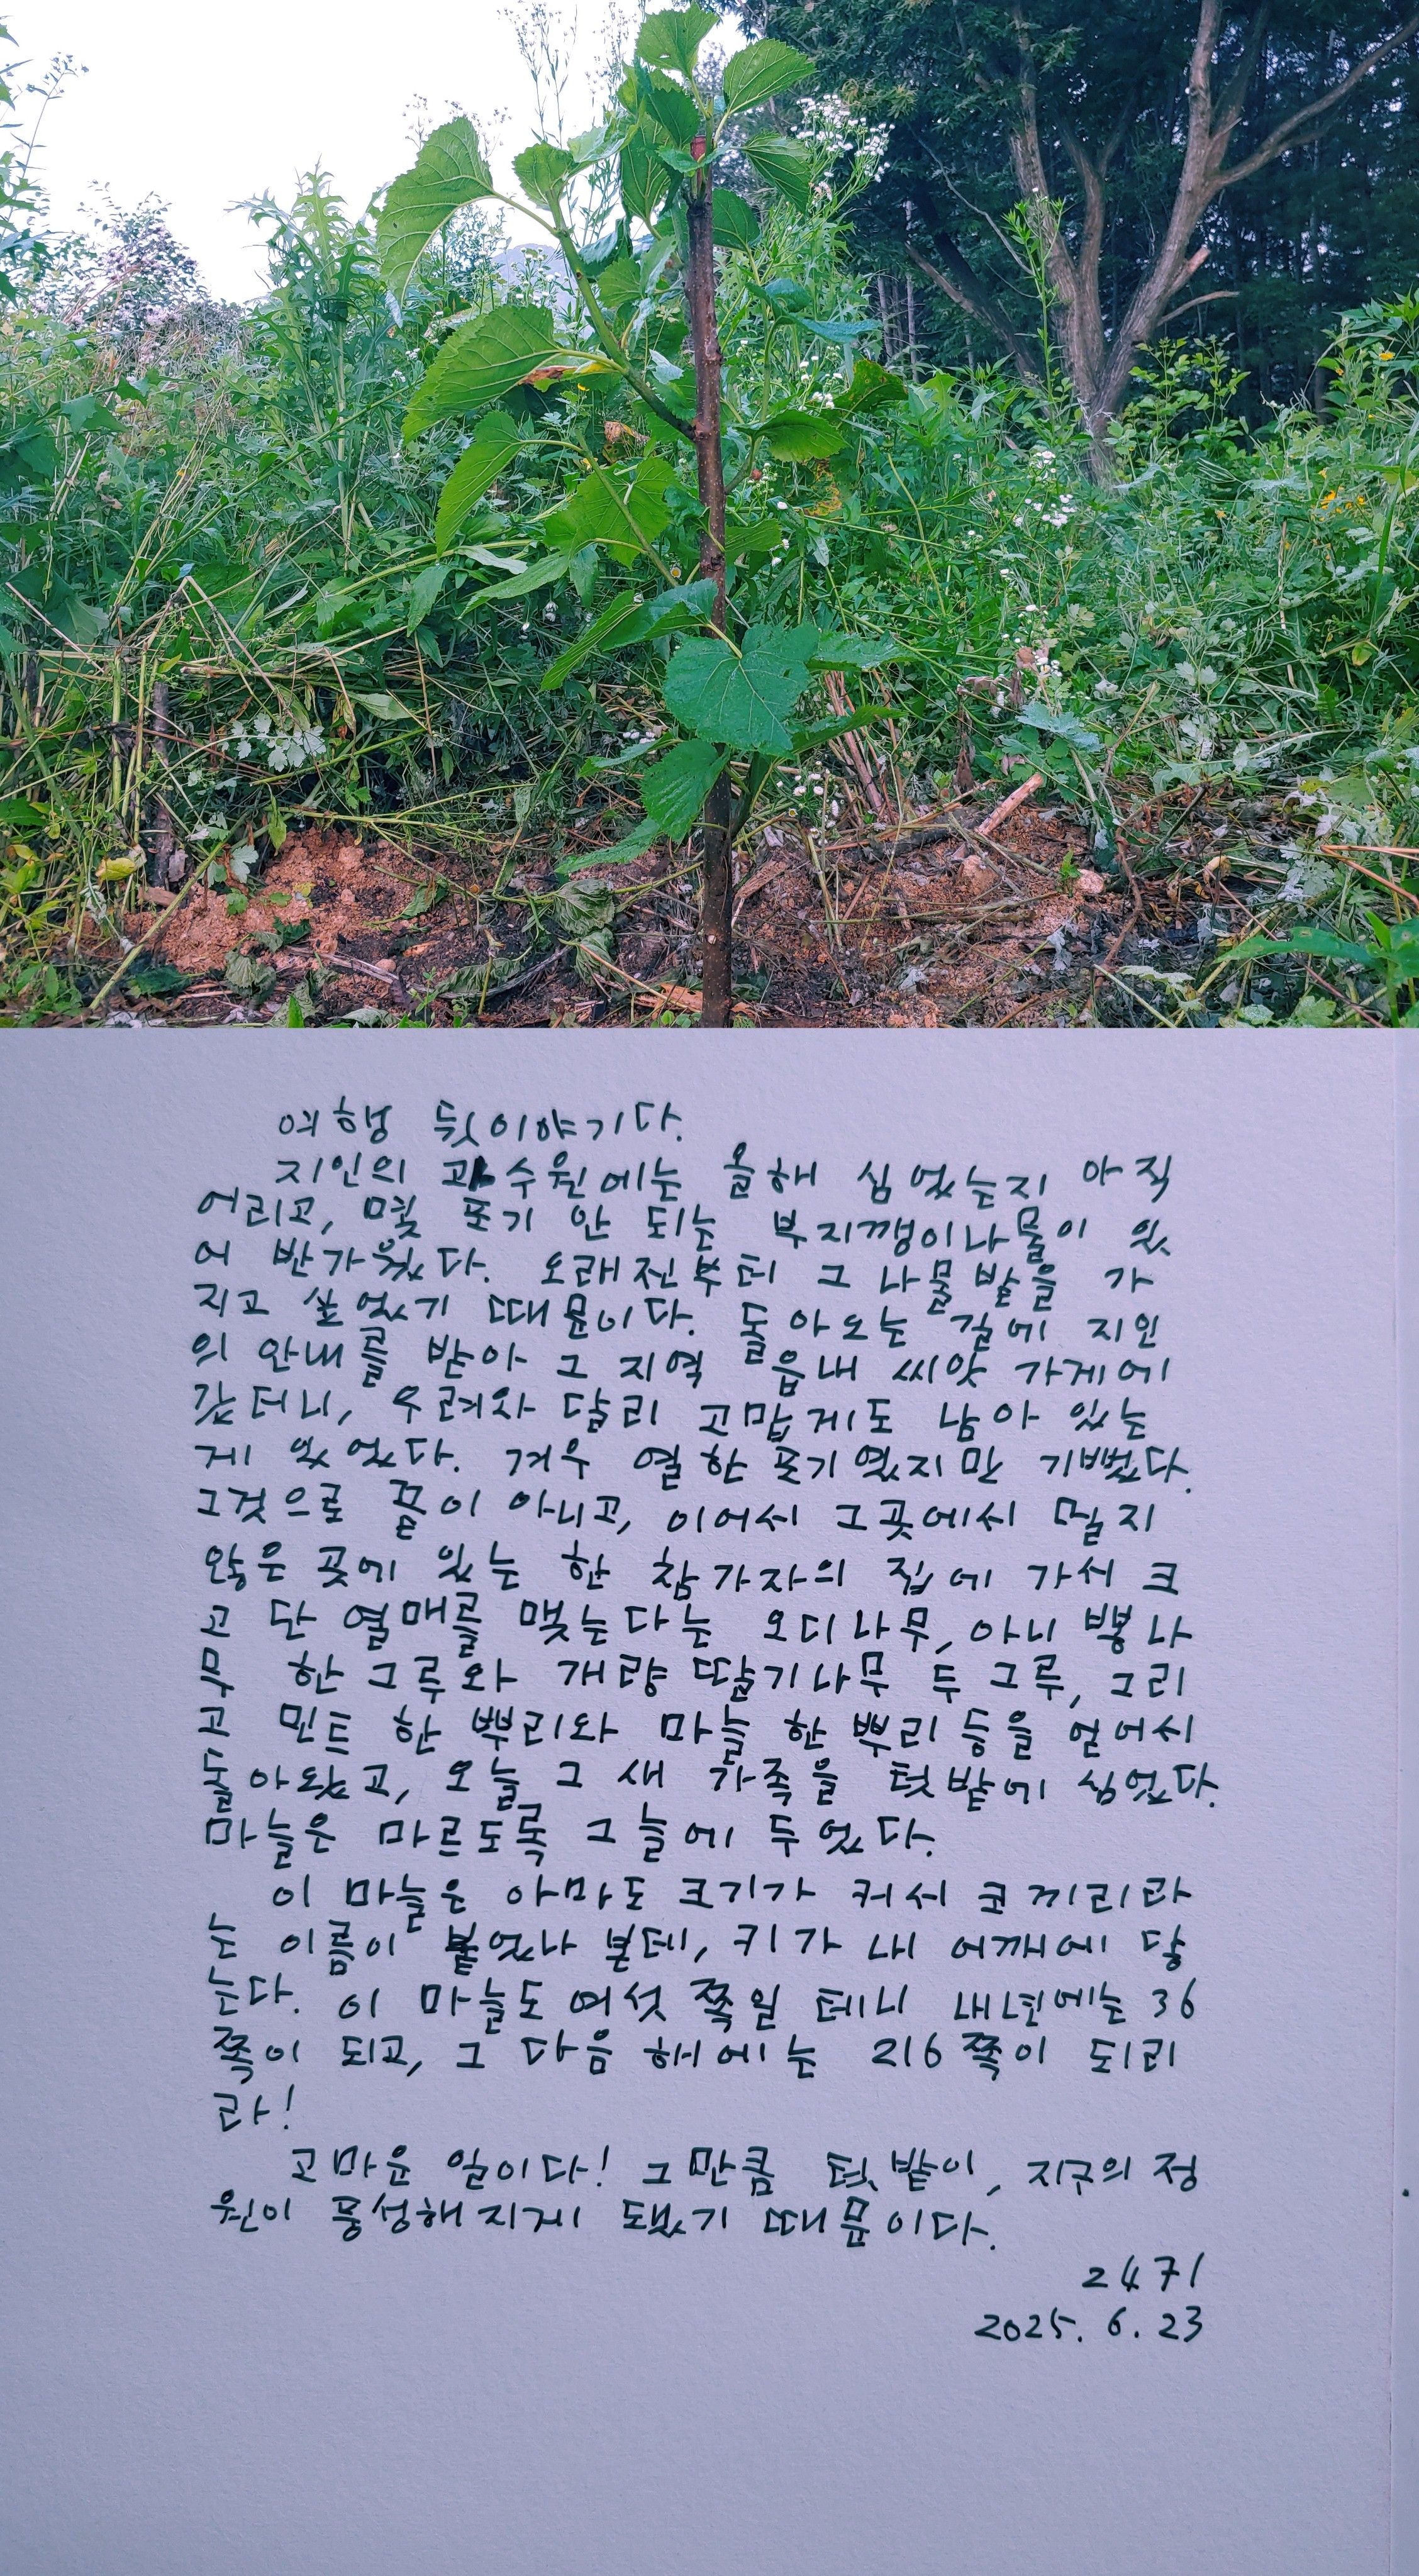 여행 뒷이야기다.
지인의 과수원에는 올해 심었는지 아직
어리고, 몇 포기 안 되는 부지깽이나물이 있
어 반가웠다. 오래전부터 그 나물밭을 가
지고 싶었기 때문이다. 돌아오는 길에 지인
의 안내를 받아 그 지역 읍내 씨앗 가게에
갔더니, 우려와 달리 고맙게도 남아 있는
게 있었다. 겨우 열한 포기였지만 기뻤다.
그것으로 끝이 아니고, 이어서 그곳에서 멀지
않은 곳에 있는 한 참가자의 집에 가서 크
고 단 열매를 맺는다는 오디나무, 아니 뽕나
무 한 그루와 개량 딸기나무 두 그루, 그리
고 민트 한 뿌리와 마늘 한 뿌리 등을 얻어서
돌아왔고, 오늘 그 새 가족을 텃밭에 심었다.
마늘은 마르도록 그늘에 두었다.
이 마늘은 아마도 크기가 커서 코끼리라
는 이름이 붙었나 본데, 키가 내 어깨에 닿
는다. 이 마늘도 여섯 쪽일 테니 내년에는 36
쪽이 되고, 그 다음 해에는 216쪽이 되리
라!
고마운 일이다! 그만큼 텃밭이, 지구의 정
원이 풍성해지게 됐기 때문이다.
2471
2025. 6. 23